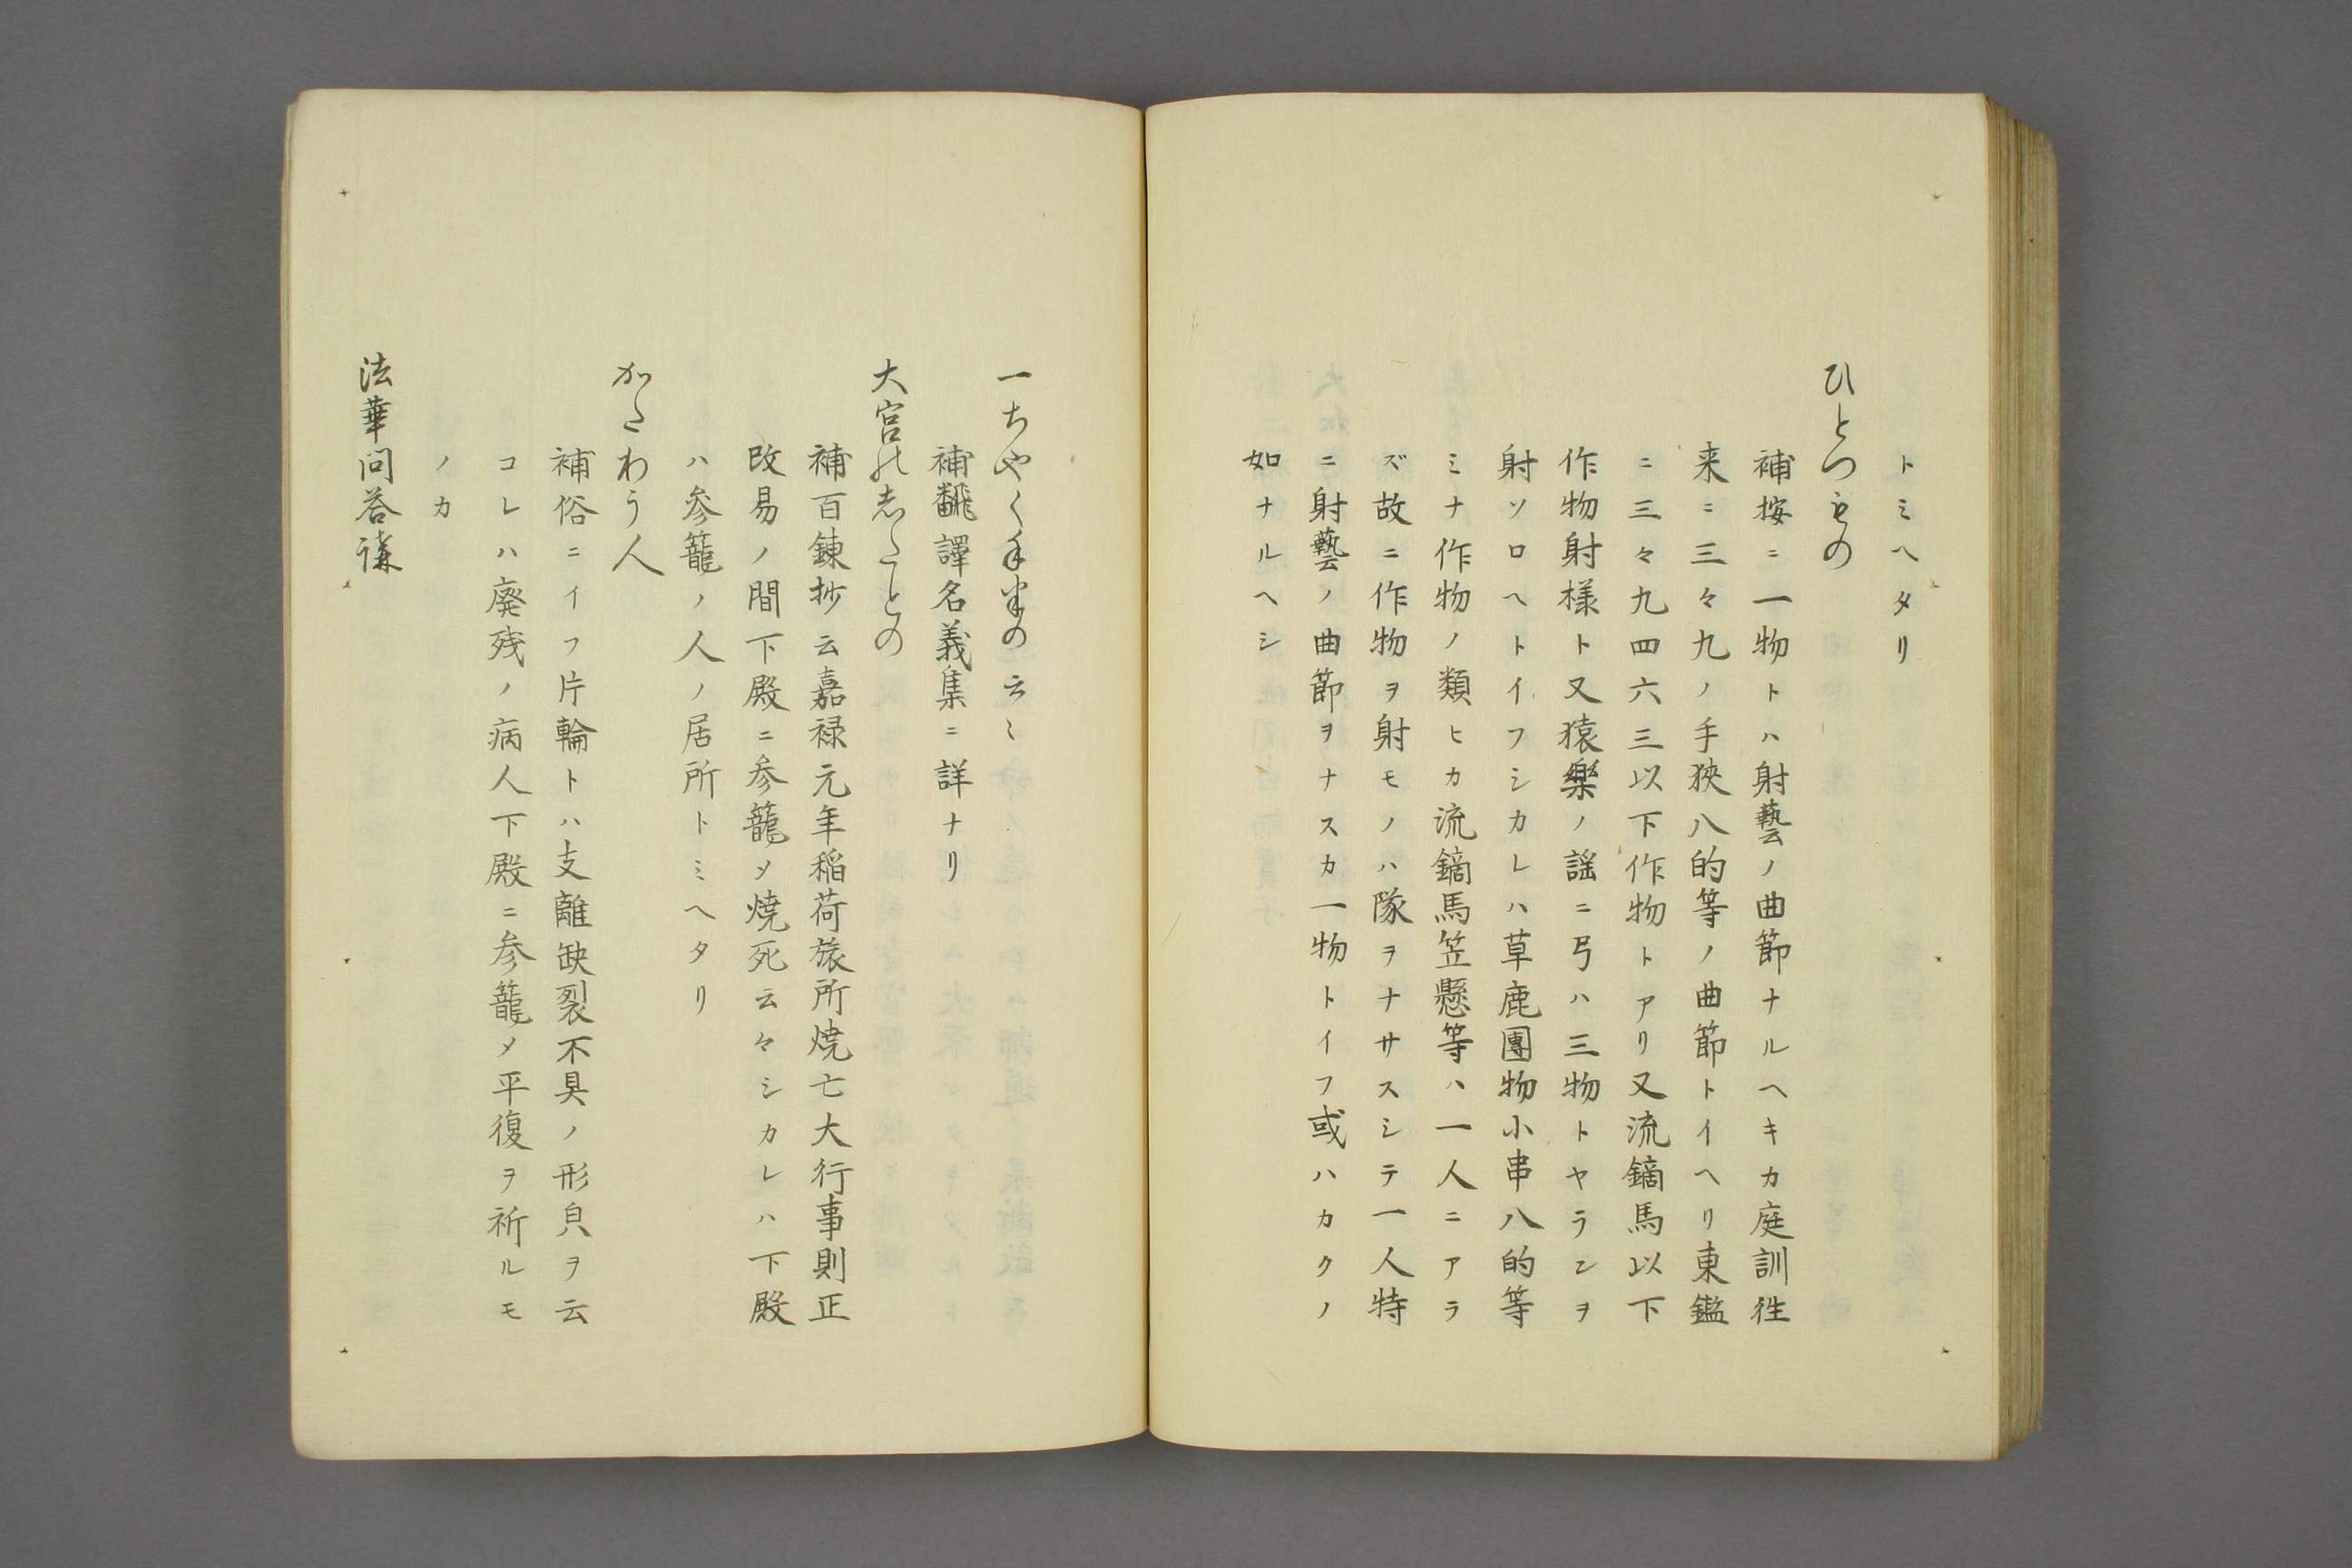 トミヘタリ
ひとつもの
補按ニ一物トハ射藝ノ曲節ナルヘキカ庭訓徃
来ニ三々九ノ手狹八的等ノ曲節トイヘリ東鑑
ニ三々九四六三以下作物トアリ又流鏑馬以下
作物射様ト又猿樂ノ謡ニ弓ハ三物トヤランヲ
射ソロヘトイフシカレハ草鹿團物小串八的等
ミナ作物ノ類ヒカ流鏑馬笠懸等ハ一人ニアラ
ズ故ニ作物ヲ射モノハ隊ヲナサスシテ一人特
ニ射藝ノ曲節ヲナスカ一物トイフ或ハカクノ
如ナルヘシ
一ちやく手半の云々
補飜譯名義集ニ詳ナリ
大宮のしたとの
補百錬抄云嘉禄元年稲荷旅所焼亡大行事則正
改易ノ間下殿ニ参籠メ焼死云々シカレハ下殿
ハ参籠ノ人ノ居所トミヘタリ
かたわう人
補俗ニイフ片輪トハ支離缺裂不具ノ形皃ヲ云
コレハ廢残ノ病人下殿ニ参籠メ平復ヲ祈ルモ
ノカ
法華問答講